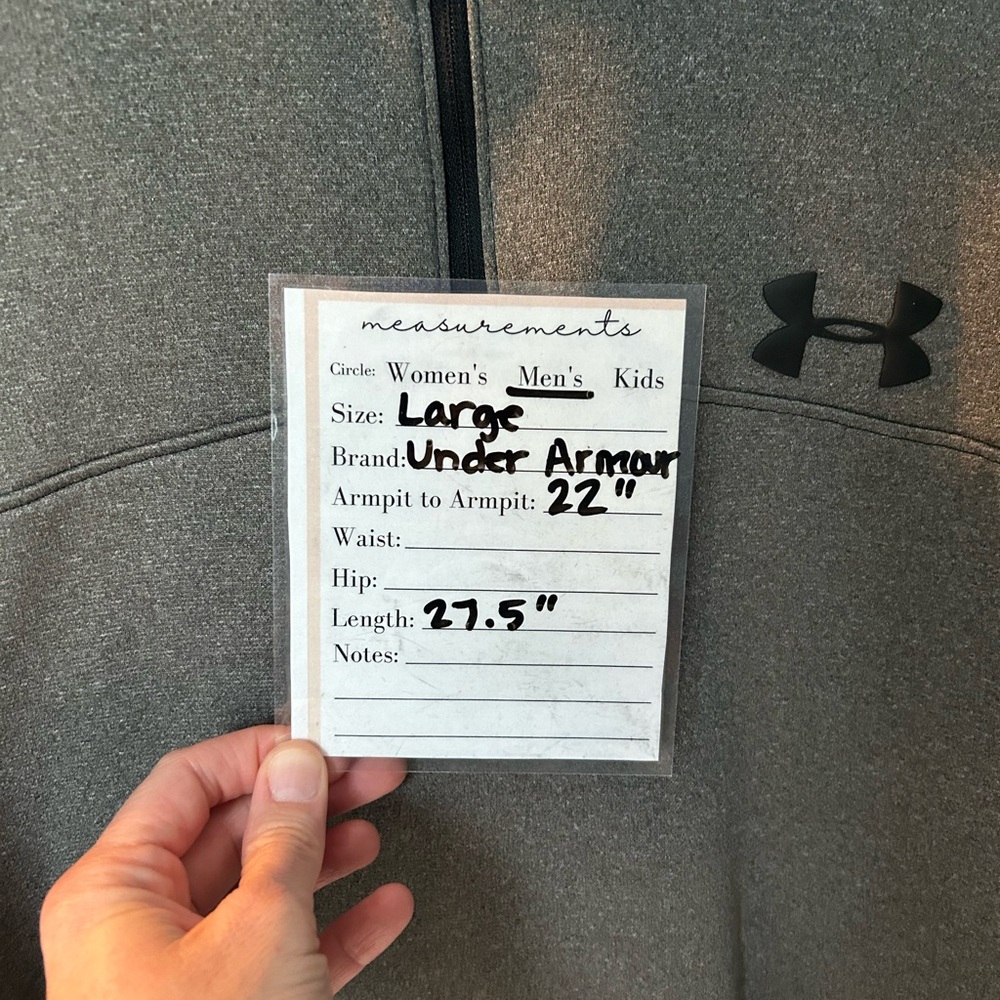 measurements
Circle: Women's Men's Kids
Size: Large
Brand: Under Armour
Armpit to Armpit: 22"
Waist:
Hip:
Length: 27.5"
Notes: